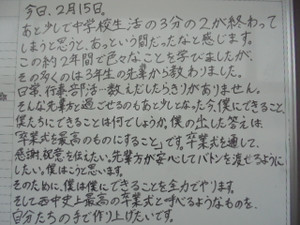 今日、2月15日。
あと少しで中学校生活の3分の2が終わって
しまうと思うと、あっという間だったなと感じます。
この約2年間で色々なことを学びましたが、
その多くのは3年生の先輩から教わりました。
日常、行事、部活…数えだしたらきりがありません。
そんな先輩方と過ごせるのもあと少しとなった今、僕にできること、
僕たちにできることは何でしょうか。僕の出した答えは、
「卒業式を最高のものにすること」です。卒業式を通して、
感謝、祝意を伝えたい。先輩方が安心してバトンを渡せるように
したい。僕はこう思います。
そのために、僕は僕にできることを全力でやります。
そして西中史上最高の卒業式と呼べるようなものを、
自分たちの手で作り上げたいです。